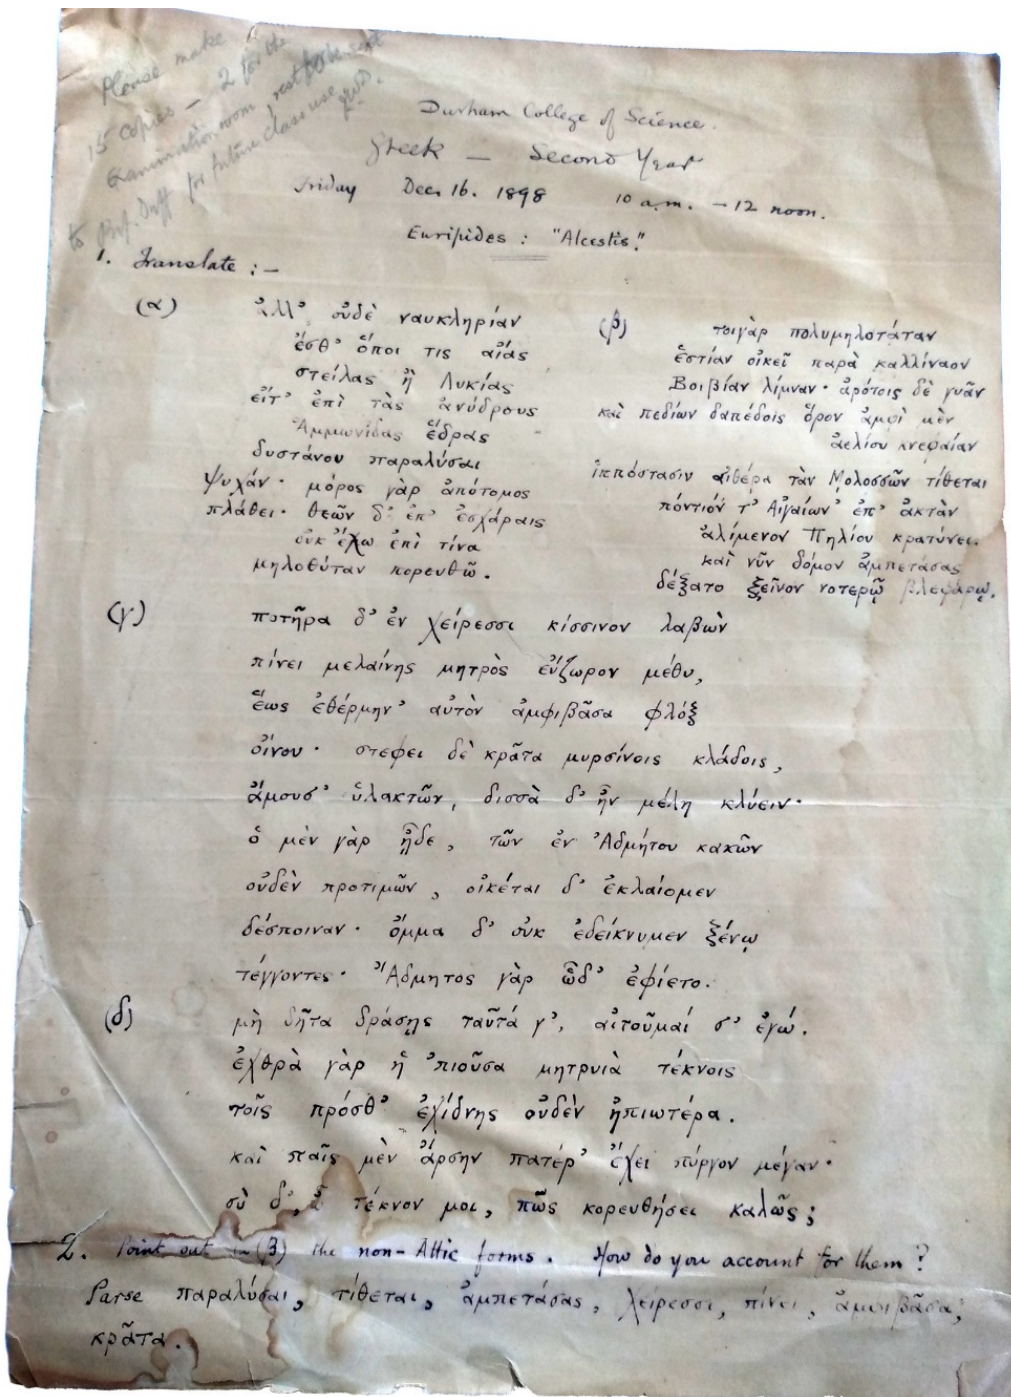 Please make
15 copies — 2 for the
Examination room, rest to be sent
to Prof. Duff for future class use
Durham College of Science.
Greek — Second Year
Friday Dec. 16. 1898 10 a.m. — 12 noon.
Euripides : "Alcestis."
1. Translate :—
(α)
ἀλλ' οὐδὲ ναυκληρίαν
ἔσθ' ὅποι τις αἴας
στείλας ἢ Λυκίας
εἴτ' ἐπὶ τὰς ἀνύδρους
Ἀμμωνίδας ἕδρας
δυστάνου παραλύσαι
ψυχάν· μόρος γὰρ ἀπότομος
πλάθει· θεῶν δ' ἐπ' ἐσχάραις
οὐκ ἔχω ἐπὶ τίνα
μηλοθύταν πορευθῶ.
(β)
τοιγὰρ πολυμηλοτάταν
ἑστίαν οἰκεῖ παρὰ καλλίναον
Βοιβίαν λίμναν· ἀρότοις δὲ γυᾶν
καὶ πεδίων δαπέδοις ὅρον ἀμφὶ μὲν
ἀελίου κνεφαίαν
ἱππόστασιν αἰθέρα τὰν Μολοσσῶν τίθεται
πόντιόν τ' Αἰγαίων' ἐπ' ἀκτὰν
ἀλίμενον Πηλίου κρατύνει.
καὶ νῦν δόμον ἀμπετάσας
δέξατο ξεῖνον νοτερῷ βλεφάρῳ.
(γ)
ποτῆρα δ' ἐν χείρεσσι κίσσινον λαβὼν
πίνει μελαίνης μητρὸς εὔζωρον μέθυ,
ἕως ἐθέρμην' αὐτὸν ἀμφιβᾶσα φλὸξ
οἴνου· στεφει δὲ κρᾶτα μυρσίνοις κλάδοις,
ἄμουσ' ὑλακτῶν, δισσὰ δ' ἦν μέλη κλύειν·
ὁ μὲν γὰρ ᾖδε, τῶν ἐν Ἀδμήτου κακῶν
οὐδὲν προτιμῶν, οἰκέται δ' ἐκλαίομεν
δέσποιναν· ὄμμα δ' οὐκ ἐδείκνυμεν ξένῳ
τέγγοντες· Ἄδμητος γὰρ ὧδ' ἐφίετο.
(δ)
μὴ δῆτα δράσῃς ταῦτά γ', αἰτοῦμαί σ' ἐγώ.
ἐχθρὰ γὰρ ἡ 'πιοῦσα μητρυιὰ τέκνοις
τοῖς πρόσθ' ἐχίδνης οὐδὲν ἠπιωτέρα.
καὶ παῖς μὲν ἄρσην πατέρ' ἔχει πύργον μέγαν·
σὺ δ', ὦ τέκνον μοι, πῶς κορευθήσει καλῶς;
2. Point out in (β) the non-Attic forms. How do you account for them?
Parse παραλύσαι, τίθεται, ἀμπετάσας, χείρεσσι, πίνει, ἀμφιβᾶσα,
κρᾶτα.